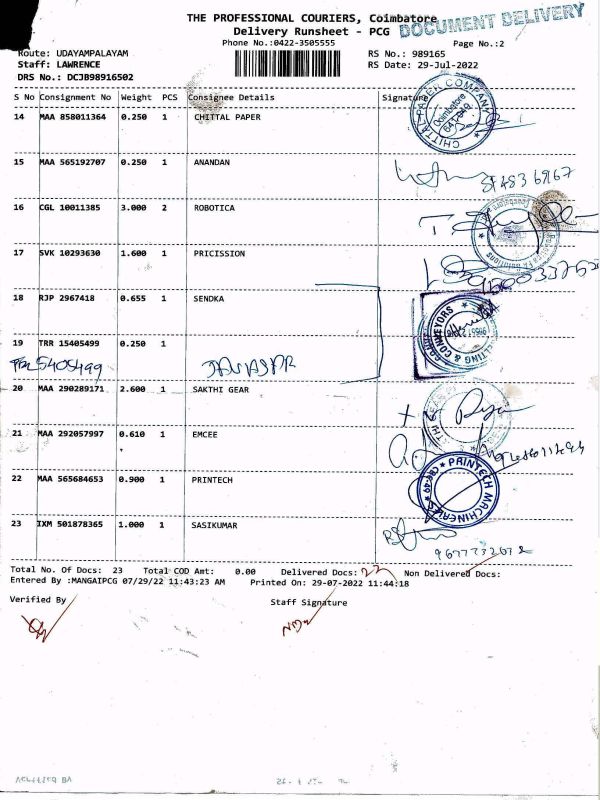 THE PROFESSIONAL COURIERS, Coimbatore
DOCUMENT DELIVERY
Delivery Runsheet - PCG
Phone No.:0422-3505555
Page No.:2
Route: UDAYAMPALAYAM
RS No.: 989165
Staff: LAWRENCE
RS Date: 29-Jul-2022
DRS No.: DCJB98916502
S No Consignment No Weight PCS Consignee Details Signature
14 MAA 858011364 0.250 1 CHITTAL PAPER
CHITTAL PAPER COMPANY
Coimbatore
15 MAA 565192707 0.250 1 ANANDAN
16 CGL 10011385 3.000 2 ROBOTICA
17 SVK 10293630 1.600 1 PRICISSION
18 RJP 2967418 0.655 1 SENDKA
& CONVEYORS
19 TRR 15405499 0.250 1
20 MAA 290289171 2.600 1 SAKTHI GEAR
21 MAA 292057997 0.610 1 EMCEE
22 MAA 565684653 0.900 1 PRINTECH
PRINTECH MACHINERIES
23 IXM 501878365 1.000 1 SASIKUMAR
Total No. Of Docs: 23 Total COD Amt: 0.00 Delivered Docs: Non Delivered Docs:
Entered By :MANGAIPCG 07/29/22 11:43:23 AM Printed On: 29-07-2022 11:44:18
Verified By
Staff Signature